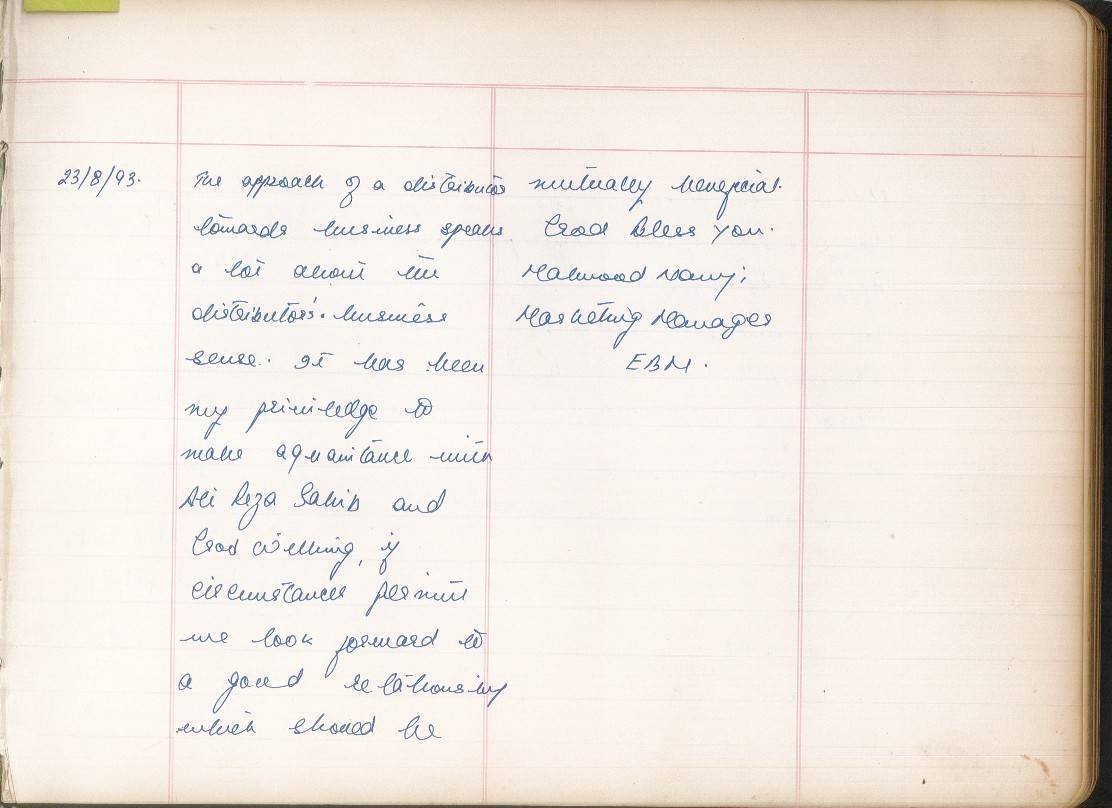 23/8/93.
The approach of a distributor
towards business speaks
a lot about the
distributors' business
sense. It has been
my priviledge to
make aquaintance with
Ali Reza Sahib and
God willing, if
circumstances permit
we look forward to
a good relationship
which should be
mutually beneficial.
God Bless you.
Mahmood
Marketing Manager
EBM.